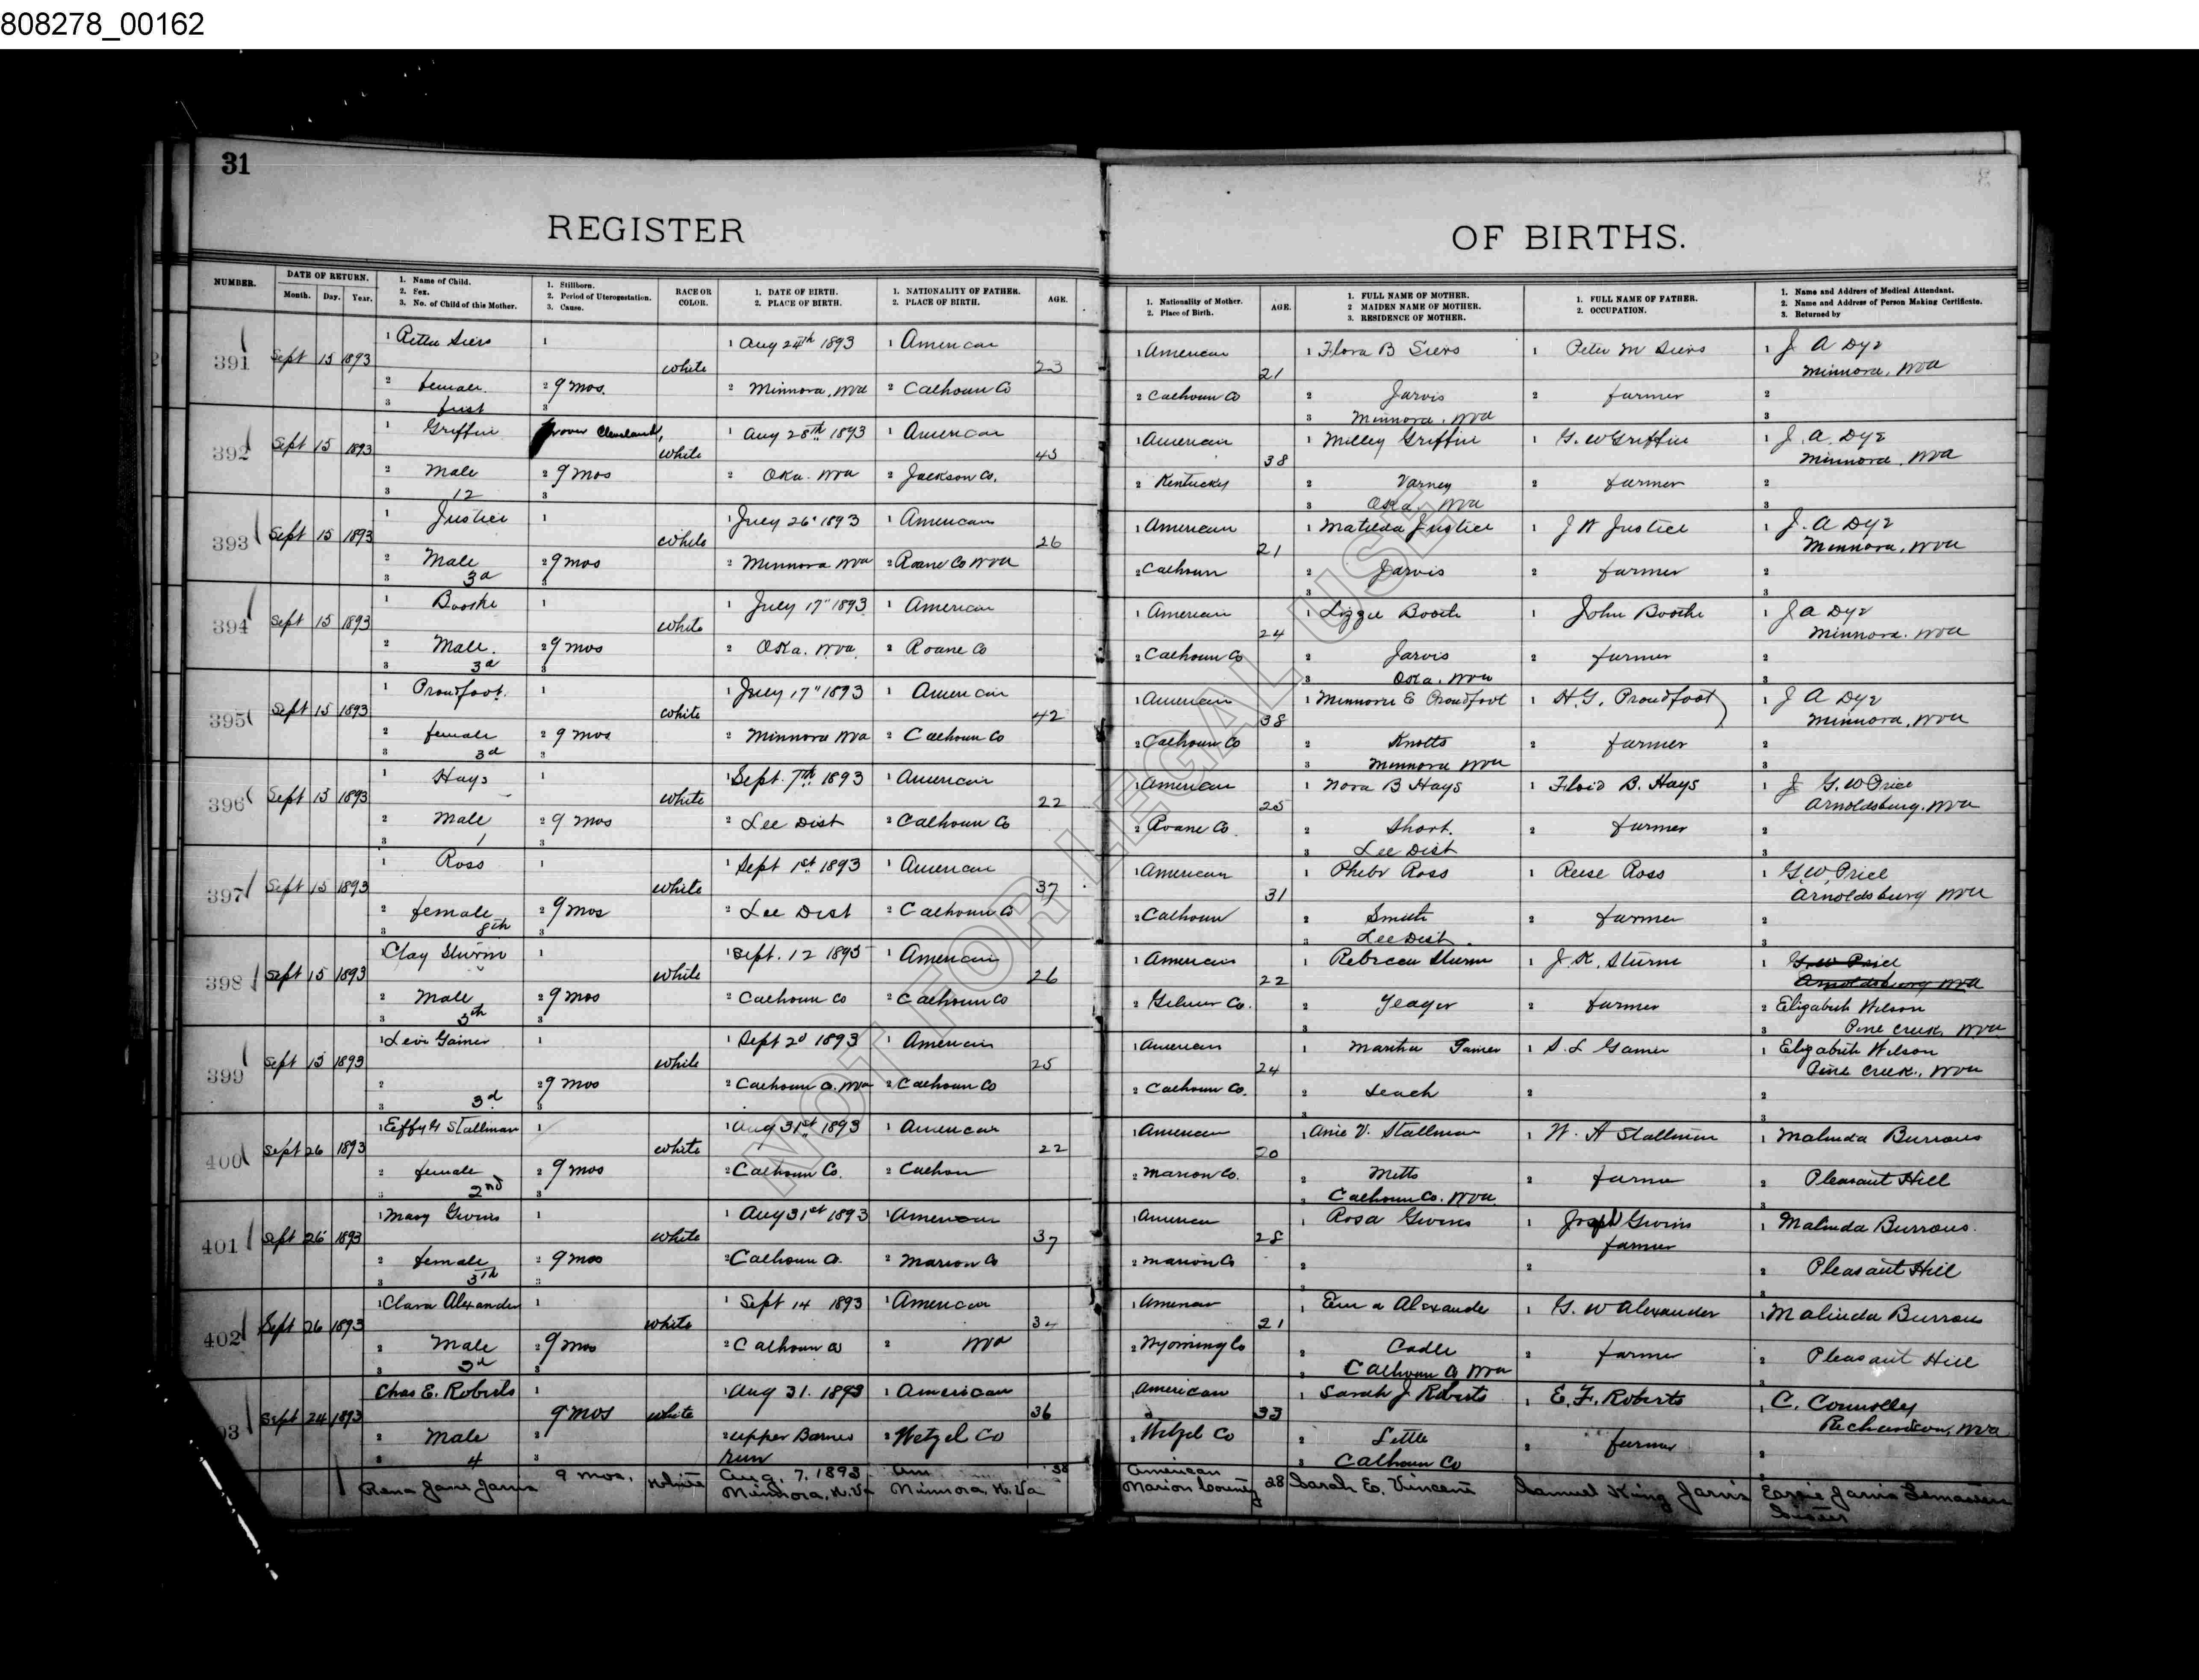 808278_00162
31
REGISTER OF BIRTHS.
NUMBER.
DATE OF RETURN.
Month. Day. Year.
1. Name of Child.
2. Sex.
3. No. of Child of this Mother.
1. Stillborn.
2. Period of Uterogestation.
3. Cause.
RACE OR COLOR.
1. DATE OF BIRTH.
2. PLACE OF BIRTH.
1. NATIONALITY OF FATHER.
2. PLACE OF BIRTH.
AGE.
1. Nationality of Mother.
2. Place of Birth.
AGE.
1. FULL NAME OF MOTHER.
2 MAIDEN NAME OF MOTHER.
3. RESIDENCE OF MOTHER.
1. FULL NAME OF FATHER.
2. OCCUPATION.
1. Name and Address of Medical Attendant.
2. Name and Address of Person Making Certificate.
3. Returned by
391 Sept 15 1893 white 23 21
1 Siers 1 1 Aug 24th 1893 1 American 1 American 1 Flora B Siers 1 Peter M Siers 1 J A Dye
Minnora, WVa
2 female 2 9 mos. 2 Minnora, WVa 2 Calhoun Co 2 Calhoun Co 2 Jarvis 2 farmer 2
3 first 3 3 Minnora, WVa 3
392 Sept 15 1893 white 45 38
1 Griffin Grover Cleveland, 1 Aug 28th 1893 1 American 1 American 1 Milley Griffin 1 G. W Griffin 1 J. A. Dye
Minnora, WVa
2 Male 2 9 mos 2 Oka. WVa 2 Jackson Co. 2 Kentucky 2 Varney 2 farmer 2
3 12 3 3 Oka, WVa 3
393 Sept 15 1893 white 26 21
1 Justice 1 1 July 26" 1893 1 American 1 American 1 Matilda Justice 1 J W Justice 1 J. A Dye
Minnora, WVa
2 Male 2 9 mos 2 Minnora WVa 2 Roane Co WVa 2 Calhoun 2 Jarvis 2 farmer 2
3 3d 3 3 3
394 Sept 15 1893 white 24
1 Boothe 1 1 July 17" 1893 1 American 1 American 1 Lizzie Boothe 1 John Boothe 1 J A Dye
Minnora. WVa
2 Male. 2 9 mos 2 Oka. WVa. 2 Roane Co 2 Calhoun Co 2 Jarvis 2 farmer 2
3 3d 3 3 Oka, WVa 3
395 Sept 15 1893 white 42 38
1 Proudfoot. 1 1 July 17" 1893 1 American 1 American 1 E Proudfoot 1 H. G. Proudfoot 1 J A Dye
Minnora, WVa
2 female 2 9 mos 2 Minnora WVa 2 Calhoun Co 2 Calhoun Co 2 Knotts 2 farmer 2
3 3d 3 3 Minnora WVa 3
396 Sept 15 1893 white 22 25
1 Hays 1 1 Sept. 7th 1893 1 American 1 American 1 Nora B Hays 1 Floid B. Hays 1 G. W Price
Arnoldsburg. WVa
2 Male 2 9 mos 2 Lee Dist 2 Calhoun Co 2 Roane Co. 2 Short. 2 farmer 2
3 1 3 3 Lee Dist 3
397 Sept 15 1893 white 37 31
1 Ross 1 1 Sept 1st 1893 1 American 1 American 1 Phebe Ross 1 Reese Ross 1 G. W. Price
Arnoldsburg WVa
2 female 2 9 mos 2 Lee Dist 2 Calhoun Co 2 Calhoun 2 Smith 2 farmer 2
3 8th 3 3 Lee Dist. 3
398 Sept 15 1893 white 26 22
1 Clay Sturm 1 1 Sept. 12 1893 1 American 1 American 1 Rebecca Sturm 1 J. K. Sturm 1 G. W Price
Arnoldsburg WVa
2 Male 2 9 mos 2 Calhoun Co 2 Calhoun Co 2 Gilmer Co. 2 Yeager 2 farmer 2 Elizabeth Wilson
3 5th 3 3 3 Pine Creek, WVa
399 Sept 15 1893 white 25 24
1 Levi Gainer 1 1 Sept 2d 1893 1 American 1 American 1 Martha Gainer 1 S. L Gainer 1 Elizabeth Wilson
Pine Creek, WVa
2 2 9 mos 2 Calhoun Co. WVa 2 Calhoun Co 2 Calhoun Co. 2 Leach 2 2
3 3d 3 3 3
400 Sept 26 1893 white 22 20
1 Stallman 1 1 Aug 31st 1893 1 American 1 American 1 Anie V. Stallman 1 W. A Stallman 1 Malinda Burrows
2 female 2 9 mos 2 Calhoun Co. 2 Calhoun 2 Marion Co. 2 Metts 2 farmer 2 Pleasant Hill
3 2nd 3 3 Calhoun Co. WVa 3
401 Sept 26 1893 white 37 28
1 Mary Givins 1 1 Aug 31st 1893 1 American 1 American 1 Rosa Givins 1 Joseph Givins 1 Malinda Burrows.
farmer
2 female 2 9 mos 2 Calhoun Co. 2 Marion Co 2 Marion Co 2 2 2 Pleasant Hill
3 5th 3 3 3
402 Sept 26 1893 white 34 21
1 Clara Alexander 1 1 Sept 14 1893 1 American 1 American 1 Alexander 1 G. W Alexander 1 Malinda Burrows
2 Male 2 9 mos 2 Calhoun Co 2 WVa 2 Wyoming Co 2 Cadle 2 farmer 2 Pleasant Hill
3 3d 3 3 Calhoun Co WVa 3
03 Sept 24 1893 white 36 33
Chas E. Roberts 1 1 Aug 31. 1893 1 American 1 American 1 Sarah J Roberts 1 E. F. Roberts 1 C. Connolley
Richardson, WVa
2 Male 2 9 mos 2 upper Barnes run 2 Wetzel Co 2 Wetzel Co 2 Little 2 farmer 2
3 4 3 Calhoun Co 3
Rena Jane Jarvis 9 mos. White Aug. 7, 1893 Am. 38 American 28 Sarah E. Vincent Samuel King Jarvis Jarvis
Minnora, W. Va Minnora, W. Va Marion County Sister
NOT FOR LEGAL USE